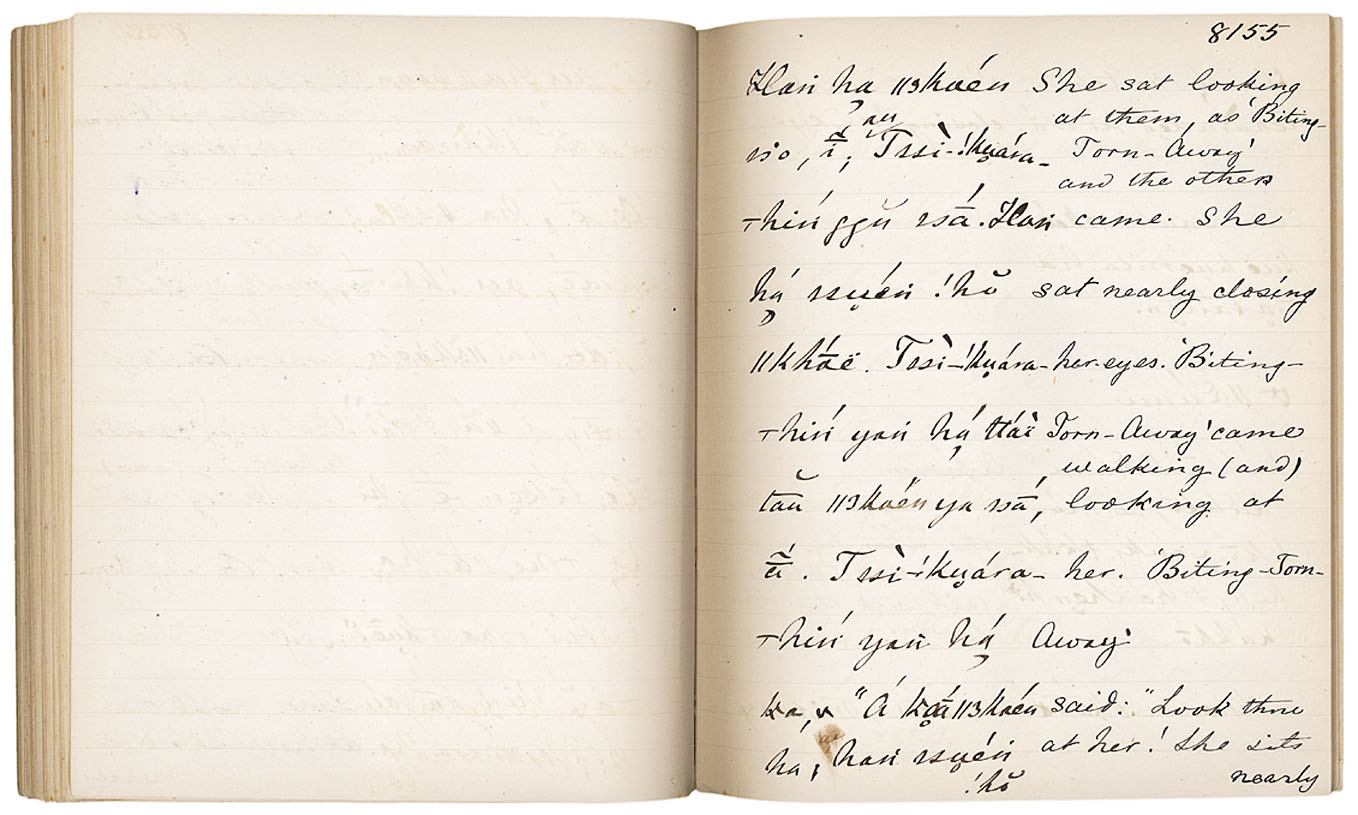 8155
Han ha ǁ3koén She sat looking
at them, as 'Biting-
au
so, i, Tssì-!kuára- Torn-Away'
and the others
-hiń ggŭ ssā́. Han came. She
há̦ ssu̯én !hŏ sat nearly closing
ǁkhóë. Tssì-!ku̯ára- her eyes. 'Biting-
-hiń yań há̦ ttáï Torn-Away' came
walking (and)
tău ǁ3koén ya ssā́, looking at
ā̃́. Tssì-!ku̯ára- her. 'Biting-Torn-
-hiń yań há̦ Away'
ka, "Á koá̄ ǁ3koén said: "Look thou
ha, han ssu̯én at her! She sits
!hŏ nearly